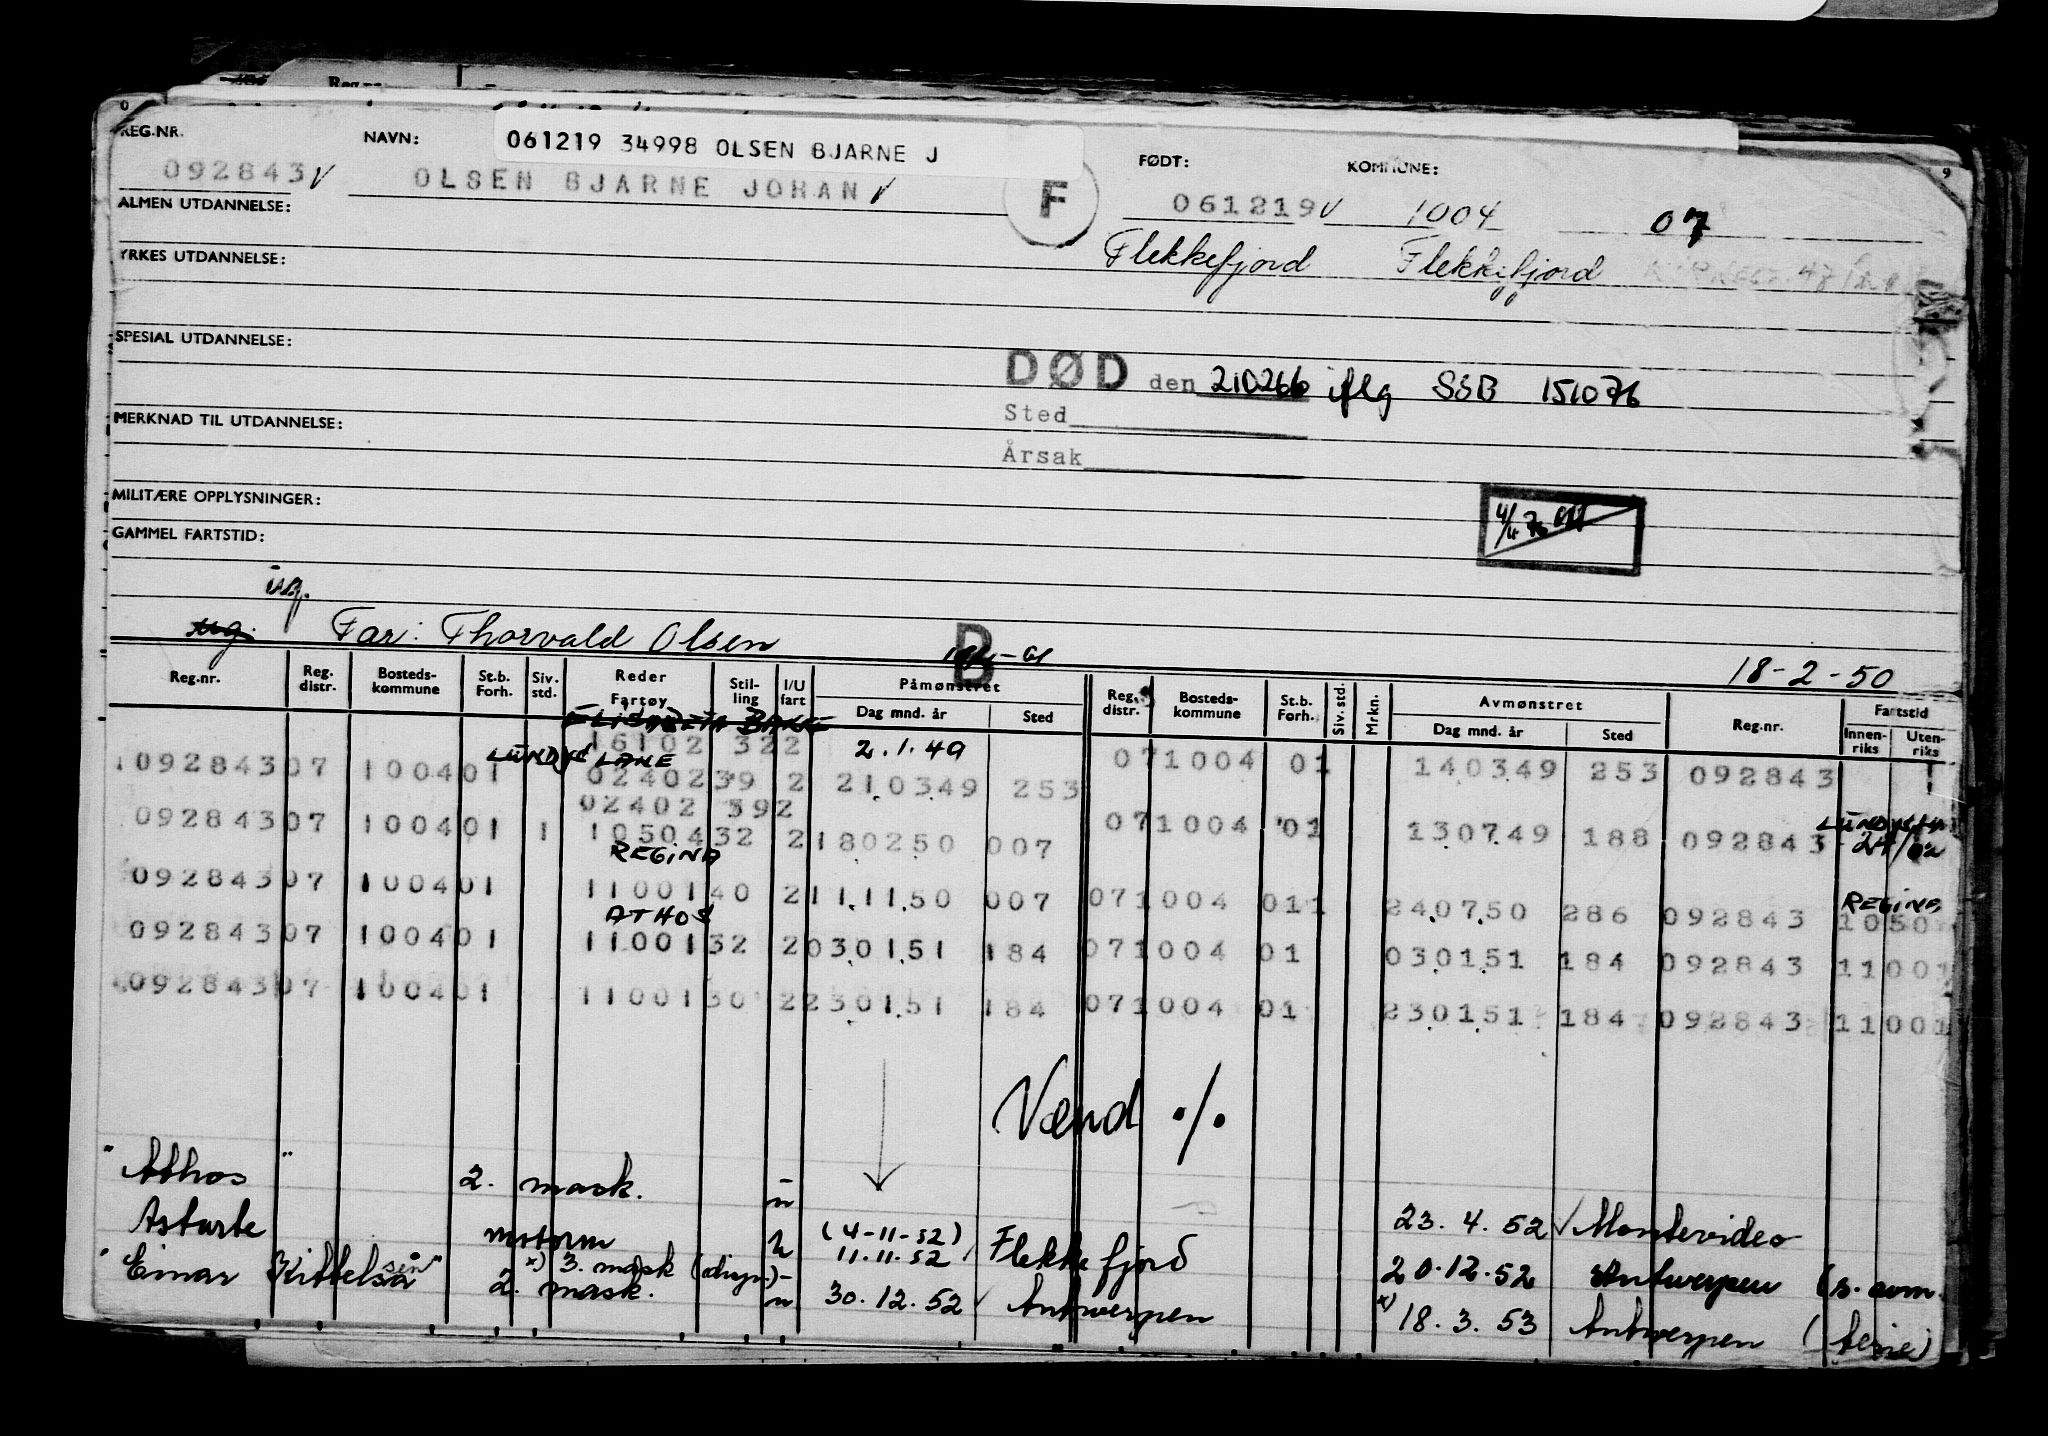 REG.NR. NAVN: 061219 34998 OLSEN BJARNE J FØDT: KOMMUNE:
092843 OLSEN BJARNE JOHAN F 061219 1004 07
ALMEN UTDANNELSE:
Flekkefjord Flekkefjord
YRKES UTDANNELSE:
SPESIAL UTDANNELSE:
DØD den 210266 iflg SSB 151076
Sted
MERKNAD TIL UTDANNELSE:
Årsak
MILITÆRE OPPLYSNINGER:
GAMMEL FARTSTID:
Far: Thorvald Olsen B 18-2-50
Reg.nr. Reg. distr. Bosteds- kommune St.b. Forh. Siv. std. Reder Fartøy Stil- ling I/U fart Påmønstret Dag mnd. år Sted Reg. distr. Bosteds- kommune St.b. Forh. Siv. std. Mrkn. Avmønstret Dag mnd. år Sted Reg.nr. Fartstid Innen- riks Uten- riks
16102 322 2.1.49
LUNDYS LANE
092843 07 1004 01 02402 39 2 210349 253 071004 01 140349 253 092843
02402 392
092843 07 1004 01 1 10504 32 2 180250 007 071004 01 130749 188 092843
REGINA
092843 07 1004 01 11001 40 2 111150 007 071004 011 240750 286 092843 1050
REGINA
ATHOS
092843 07 1004 01 11001 32 2 030151 184 071004 01 030151 184 092843 11001
092843 07 1004 01 11001 30 2 230151 184 071004 01 230151 184 092843 11001
Vend ./.
"Athos" 2. mask. u 23.4.52 Montevideo
Astarte motorm (4-11-52) 11.11.52 Flekkefjord 20.12.52 Antwerpen
x) 3. mask (disp.)
"Einar Kittelsen" 2. mask. u 30.12.52 Antwerpen x) 18.3.53 Antwerpen (ferie)